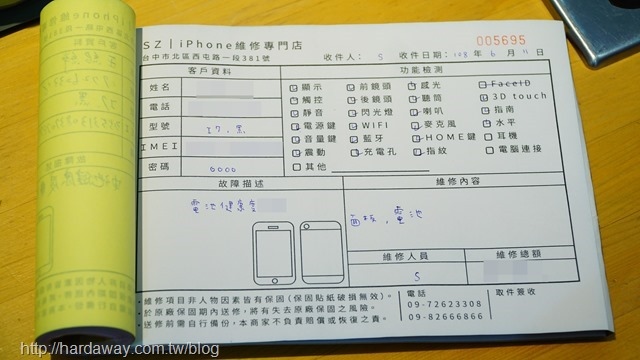 SZ | iPhone維修專門店
005695
台中市北區西屯路一段381號
收件人： S
收件日期：108年6月11日
客戶資料
功能檢測
姓名
電話
型號 i7, 黑
IMEI
密碼 0000
顯示 前鏡頭 感光 FaceID
觸控 後鏡頭 聽筒 3D touch
靜音 閃光燈 喇叭 指南
電源鍵 WIFI 麥克風 水平
音量鍵 藍牙 HOME鍵 耳機
震動 充電孔 指紋 電腦連接
其他
故障描述
維修內容
電池健康度
電池
維修人員
維修總額
S
・維修項目非人物因素皆有保固（保固貼紙破損無效）。
・於原廠保固期內送修，將有失去原廠保固之風險。
・送修前需自行備份，本商家不負責賠償或恢復之責。
電話
09-72623308
09-82666866
取件簽收
http://hardaway.com.tw/blog